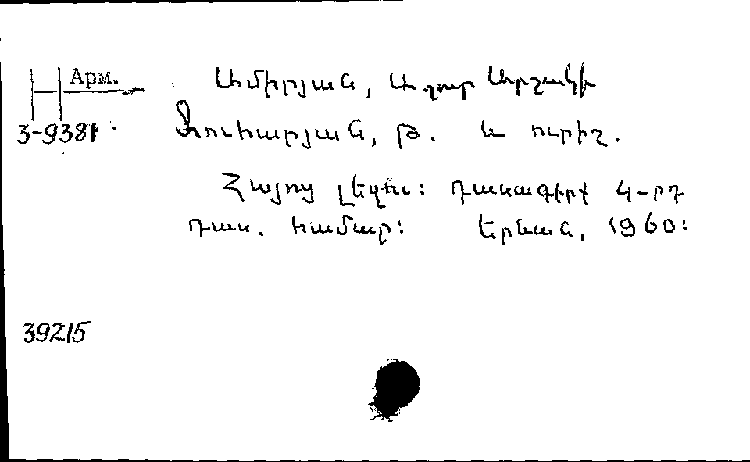 Арм.
Ամիրյան, Աղար Արշակի
3-9381
Թուխարյան, Թ. և ուրիշ.
Հայոց լեզու: Դասագիրք 4-րդ
դաս. համար: Երևան, 1960:
39215